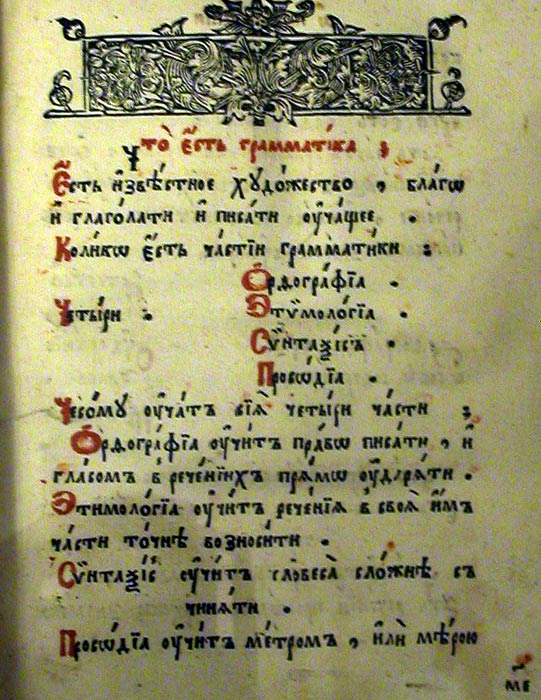 Что̀ є҆́сть грамма́тїка ;
Є҆́сть и҆звѣ́стное хꙋдо́жество , бла́гѡ
и҆ глаго́лати и҆ писа́ти ᲂу҆ча́щее .
Коли́кѡ є҆́сть ча́стїй грамма́тики ;
Ѻ҆рѳогра́фїа
Четы́ри . Э҆тѷмоло́гїа .
Сѷ́нтаѯїсъ .
Просѡ́дїа .
Чесомꙋ̀ ᲂу҆́чатъ сїѧ̑ четы́ри ча́сти ;
Ѻ҆рѳогра́фїа ᲂу҆чи́тъ пра́вѡ писа́ти , и҆
гла́сомъ в̾ рече́нїихъ прѧ́мѡ ᲂу҆дарѧ́ти .
Э҆тимоло́гїа ᲂу҆чи́тъ рече́нїѧ в̾ своѧ̑ и҆̀мъ
ча́сти то́чнѣ возноси́ти .
Сѷ́нтаѯїс ᲂу҆чи́тъ словеса̀ сло́жнѣ съ
чинѧ́ти .
Просѡ́дїа ᲂу҆чи́тъ ме́тромъ , и҆лѝ мѣ́рою
ме